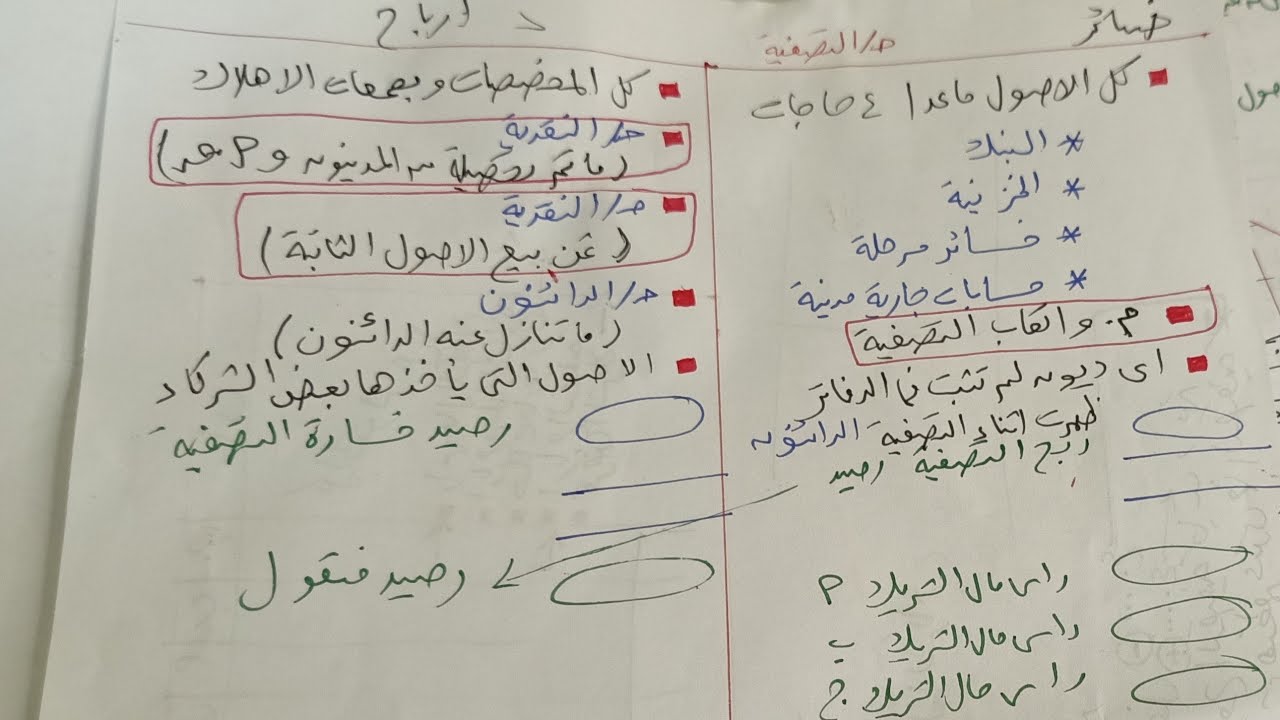 خسائر
ح/ التصفية
أرباح
كل الاصول ماعدا ٤ حاجات
* البنك
* الخزينة
* خسائر مرحلة
* حسابات جارية مدينة
م. واتعاب التصفية
اى ديون لم تثبت فى الدفاتر
ظهرت اثناء التصفية الدائنون
ربح التصفية رصيد
راس مال الشريك أ
راس مال الشريك ب
راس مال الشريك ج
كل المخصصات ومجمعات الاهلاك
ح/ النقدية
(ما تم تحصيلة من المدينون و أ.ص)
ح/ النقدية
(عن بيع الاصول الثابتة)
ح/ الدائنون
(ما تنازل عنه الدائنون)
الاصول التى يأخذها بعض الشركاء
رصيد خسارة التصفية
رصيد منقول